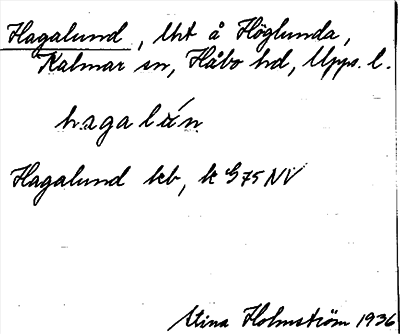 Hagalund, Uht å Höglunda,
Kalmar sn, Håbo hd, Upps. l.
Hagalund kb, k G 75 NV
Stina Holmström 1936